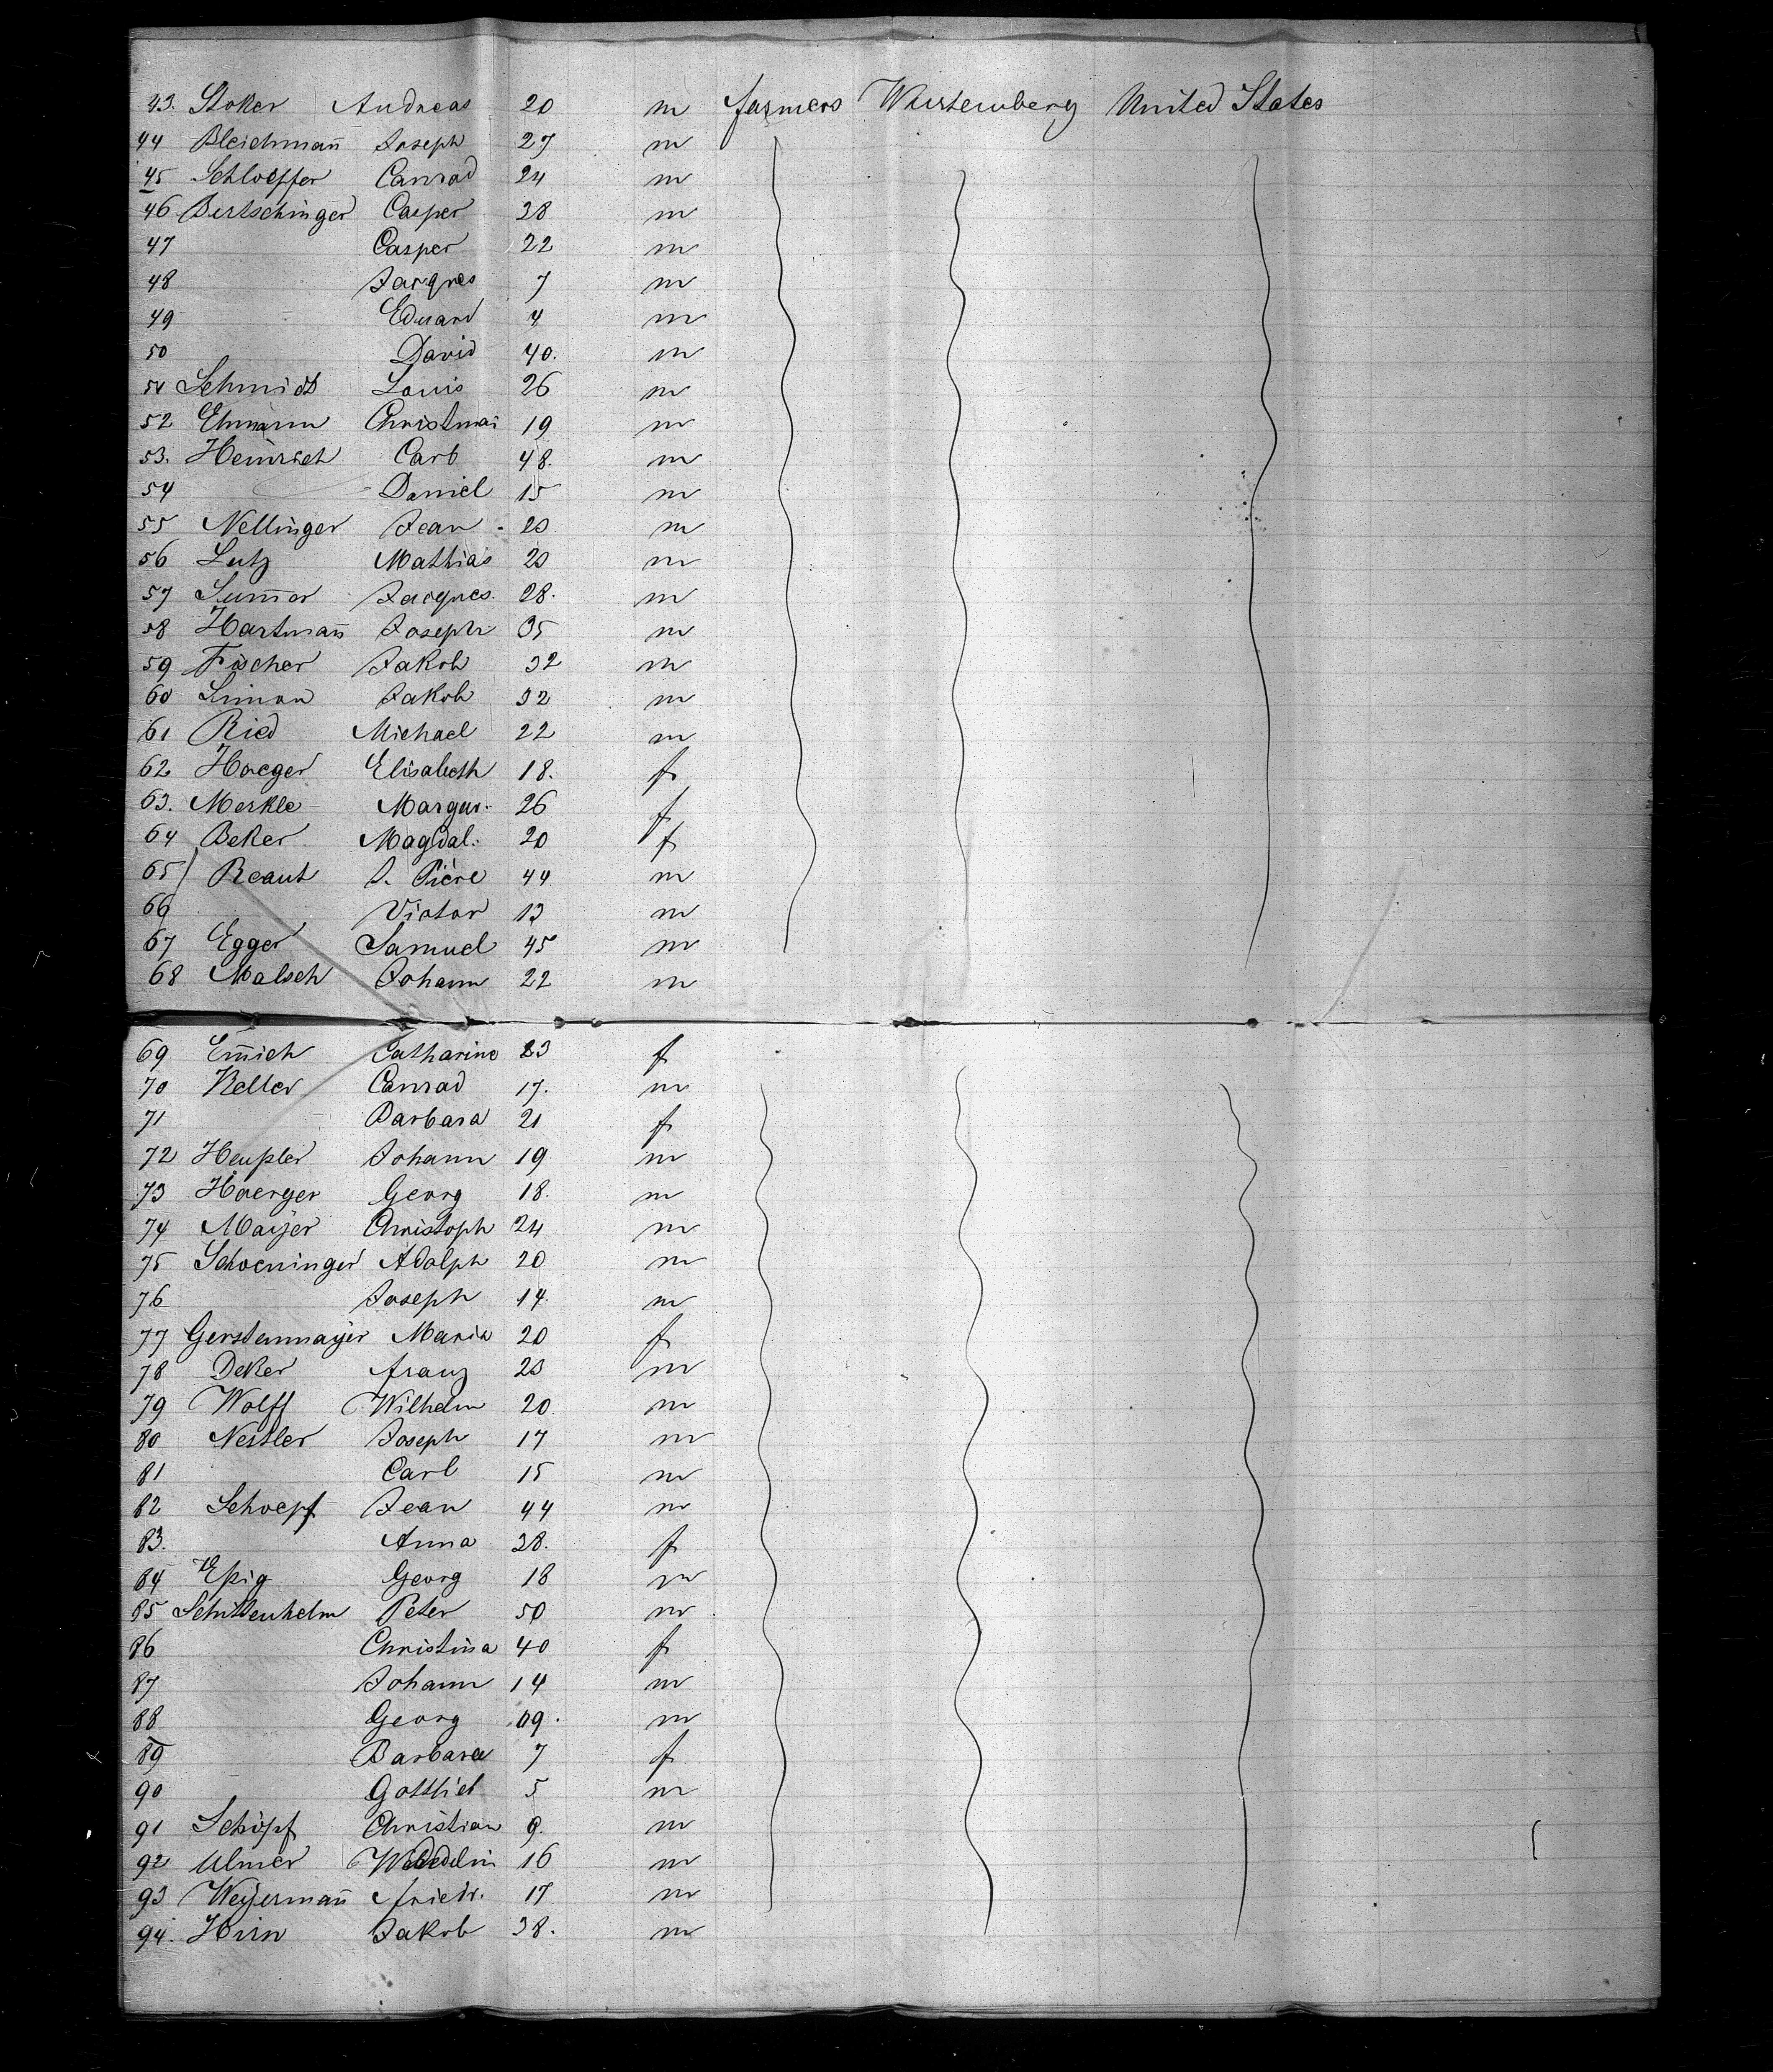 43. Stoker Andreas 20 m farmers Wurtemberg United States
44 Bleichmañ Joseph 27 m
45 Schloepfer Conrad 24 m
46 Bertschinger Casper 38 m
47 Casper 22 m
48 Jacques 7 m
49 Eduard 4 m
50 David 40. m
51 Schmidt Louis 26 m
52 Ehmann 19 m
53. Heinrich Carl 48. m
54 Daniel 15 m
55 Nellinger Jean 20 m
56 Lutz Mathias 20 m
57 Jacques. 28. m
58 Hartmañ Joseph 35 m
59 Fischer Jakob 32 m
60 Simon Jakob 32 m
61 Ried Michael 22 m
62 Haeger Elisabeth 18. f
63. Merkle Margur. 26 f
64 Beker Magdal. 20 f
65 Reaut J. Pière 44 m
66 Victor 13 m
67 Egger Samuel 45 m
68 Malsch Johann 22 m
69 Em̄ich Catharine 23 f
70 Keller Conrad 17. m
71 Barbara 21 f
72 Heupler Johann 19 m
73 Haerger Georg 18. m
74 Mayer Christoph 24 m
75 Schoeninger Adolph 20 m
76 Joseph 14 m
77 Gerstenmayer Maria 20 f
78 Deker franz 23 m
79 Wolff Wilhelm 20 m
80 Nestler Joseph 17 m
81 Carl 15 m
82 Schoepf Jean 44 m
83. Anna 38. f
84 Epig Georg 18 m
85 Schittenhelm Peter 50 m
86 Christina 40 f
87 Johann 14 m
88 Georg 09. m
89 Barbara 7 f
90 Gottlieb 5 m
91 Schöpf Christian 9. m
92 Ulmer 16 m
93 Weyermañ friedr. 17 m
94. Hirn Jakob 38. m